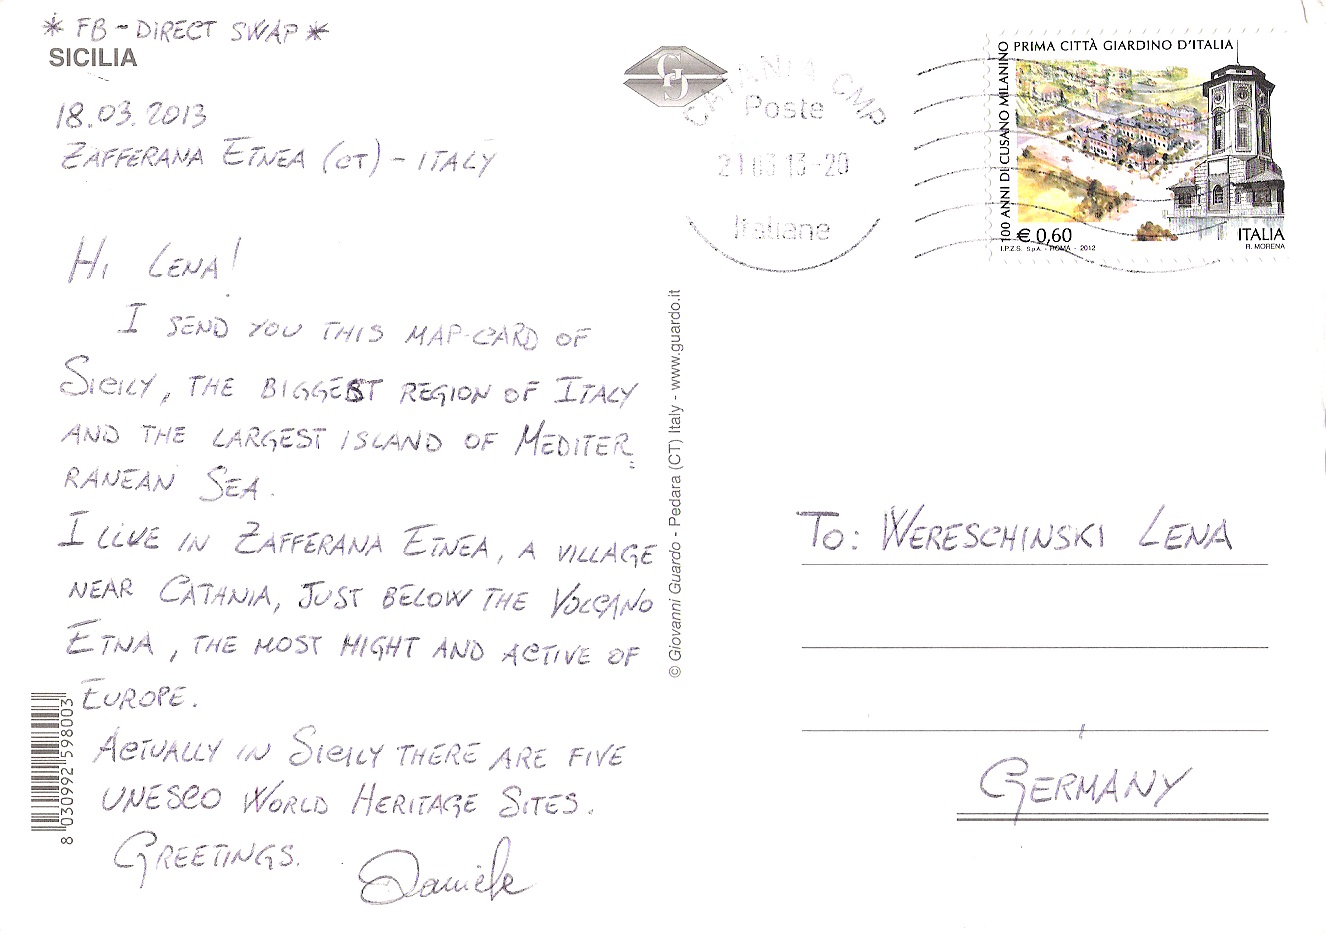 * FB - DIRECT SWAP *
SICILIA
18.03.2013
ZAFFERANA ETNEA (CT) - ITALY
HI LENA!
I SEND YOU THIS MAP-CARD OF
SICILY, THE BIGGEST REGION OF ITALY
AND THE LARGEST ISLAND OF MEDITER
RANEAN SEA.
I LIVE IN ZAFFERANA ETNEA, A VILLAGE
NEAR CATANIA, JUST BELOW THE VOLCANO
ETNA, THE MOST HIGHT AND ACTIVE OF
EUROPE.
ACTUALLY IN SICILY THERE ARE FIVE
UNESCO WORLD HERITAGE SITES.
GREETINGS.
Daniele
8 030992 598003
© Giovanni Guardo - Pedara (CT) Italy - www.guardo.it
GS
CATANIA CMP
Poste
21 03 13 -20
Italiane
100 ANNI DI CUSANO MILANINO
PRIMA CITTÀ GIARDINO D'ITALIA
€ 0,60
ITALIA
I.P.Z.S. S.p.A. - ROMA - 2012
R. MORENA
TO: WERESCHINSKI LENA
GERMANY